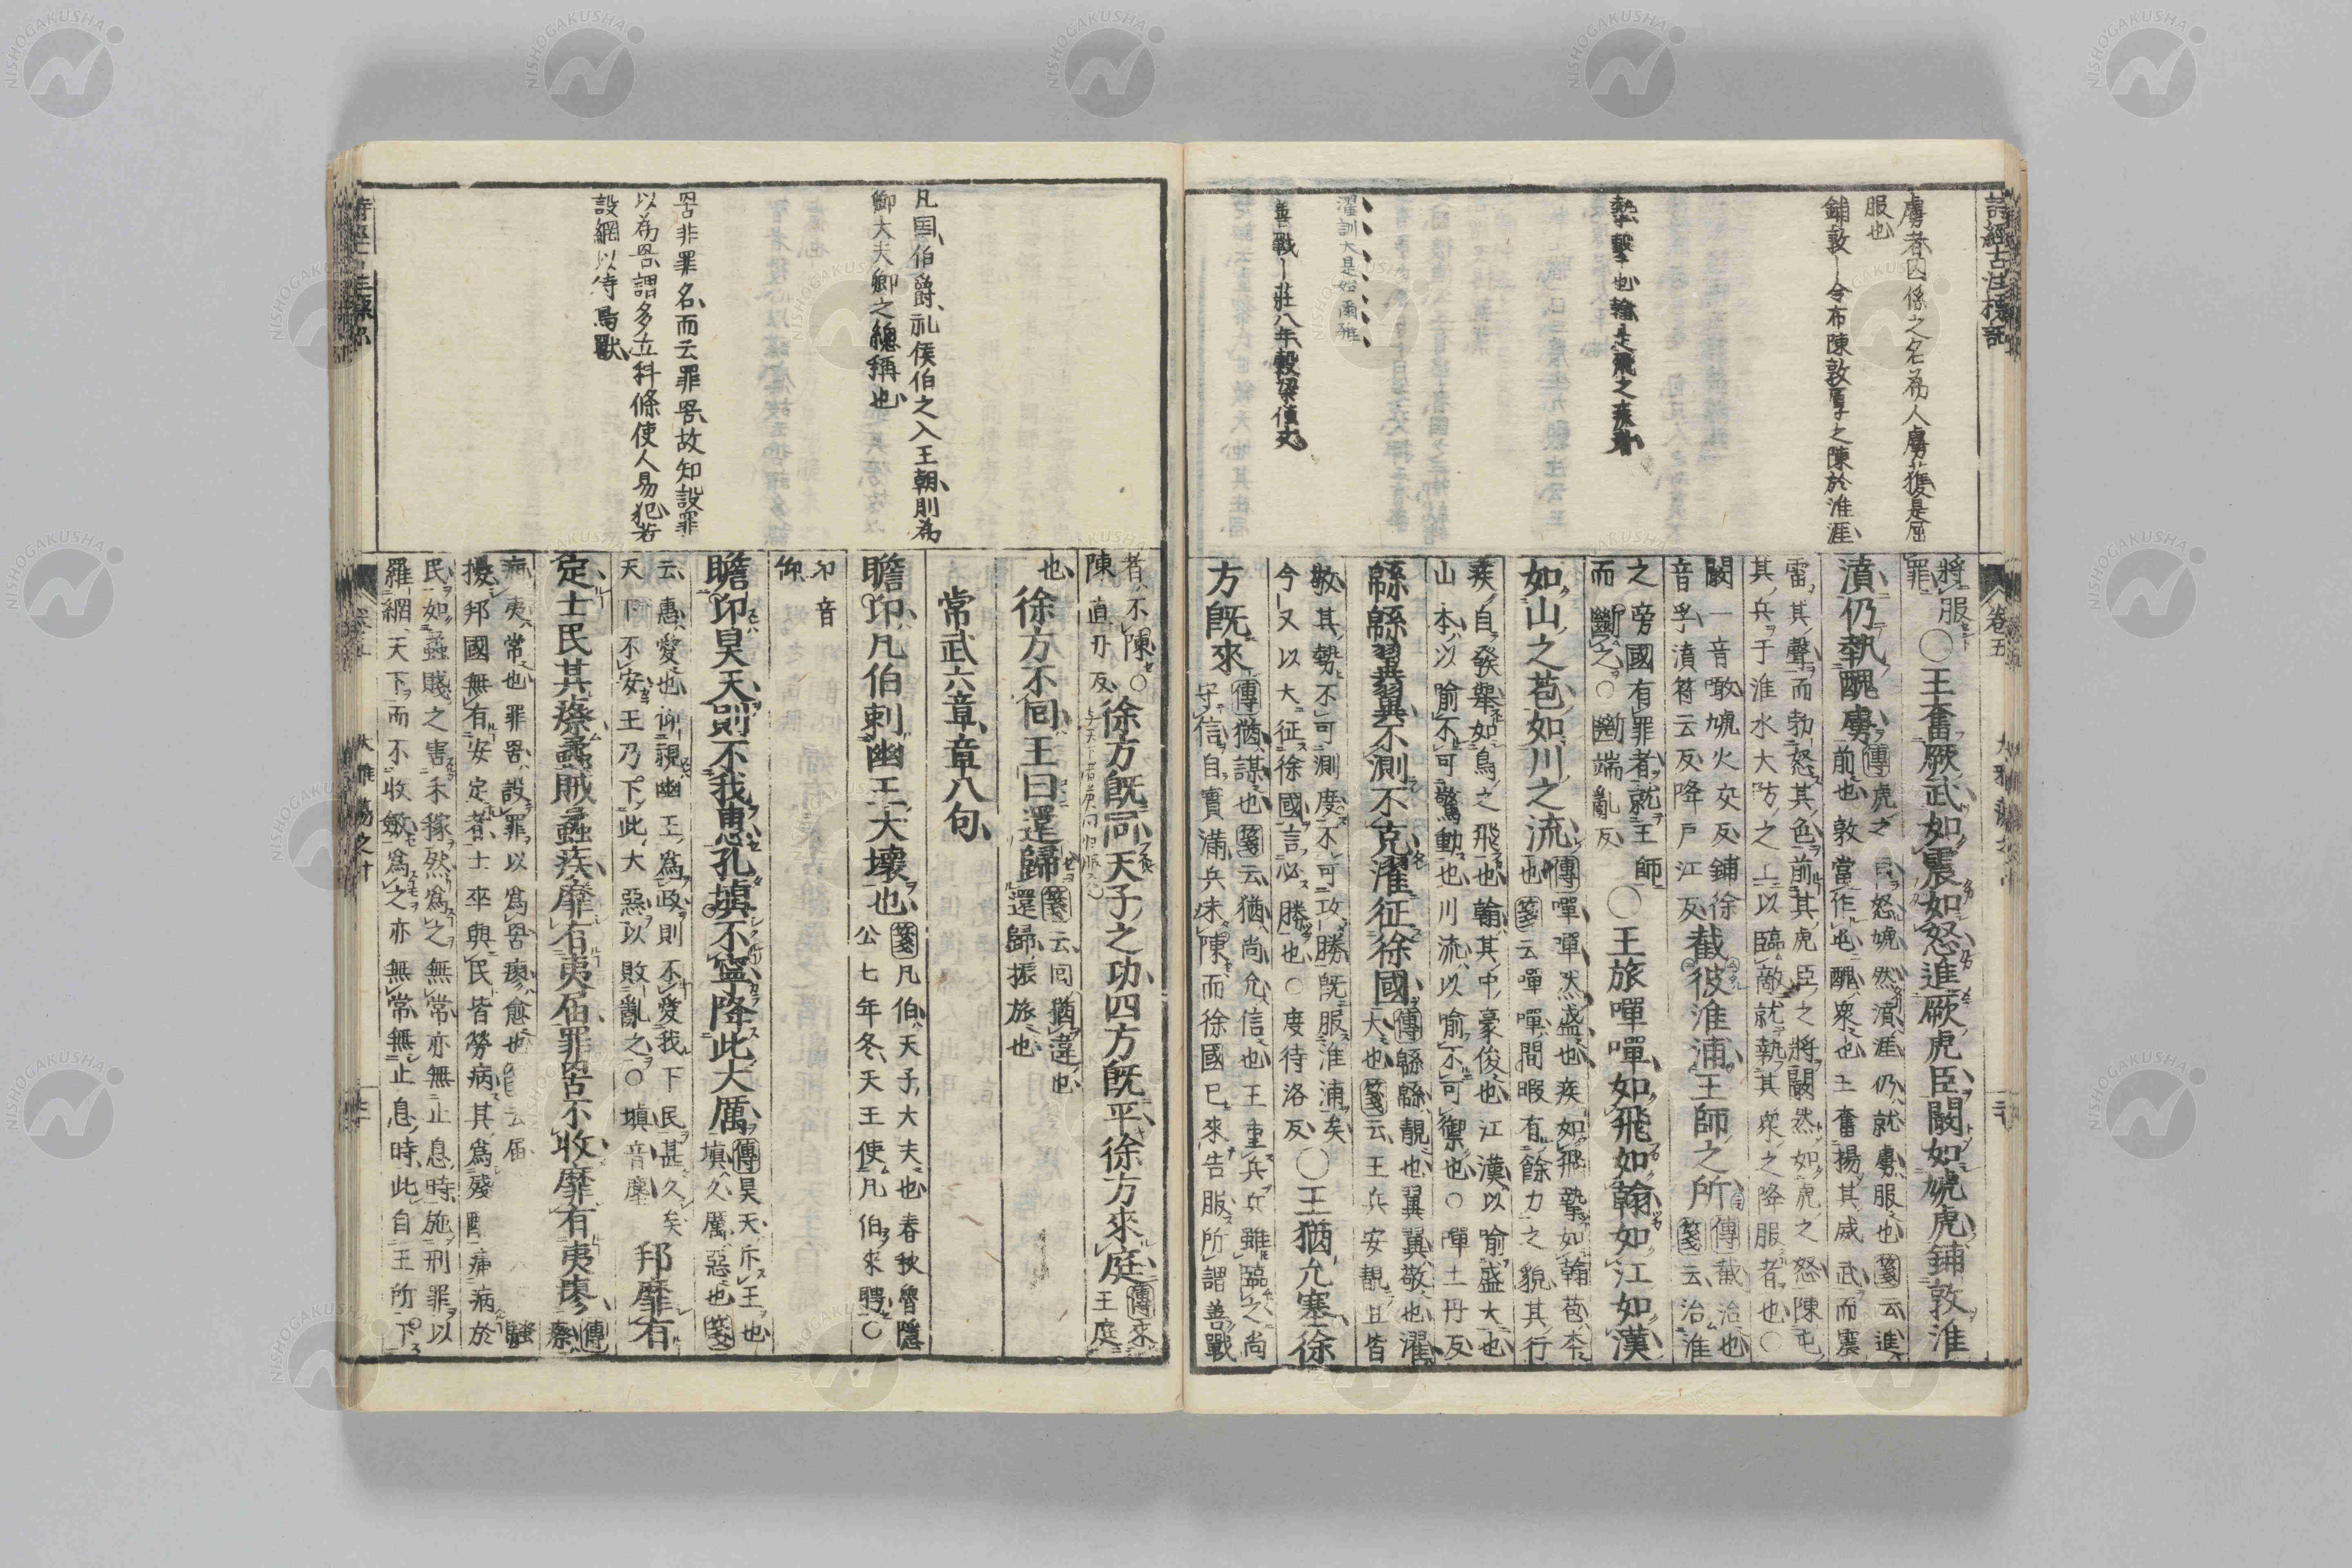 詩經古注標記
虜者囚係之名為人虜獲是屈
服也
鋪敦ー令布陳敦厚之陳於淮涯
摯擊也翰是飛之疾者
濯訓大是始爾雅
善戰ー莊八年穀梁傳文
卷五
將服
罪○王奮厥武如震如怒進厥虎臣闞如虓虎鋪敦淮
濆仍執醜虜傳虎之自怒虓然濆涯仍就虜服也箋云進
前也敦當作屯醜衆也王奮揚其威武而震
雷其聲而勃怒其色前其虎臣之將闞然如虎之怒陳屯
其兵于淮水大防之上以臨敵就執其衆之降服者也○
闞一音噉虓火交反鋪徐
音孚濆符云反降戸江反截彼淮浦王師之所傳截治也
箋云治淮
之旁國有罪者就王師
而斷之○斷端亂反○王旅嘽嘽如飛如翰如江如漢
如山之苞如川之流傳嘽嘽然盛也疾如飛摯如翰苞本
也箋云嘽嘽間暇有餘力之貌其行
疾自發舉如鳥之飛也翰其中豪俊也江漢以喻盛大也
山本以喻不可驚動也川流以喻不可禦也○嘽土丹反
緜緜翼翼不測不克濯征徐國傳緜緜靚也翼翼敬也濯
大也箋云王兵安靚且皆
敬其勢不可測度不可攻勝既服淮浦矣
今又以大征徐國言必勝也○度待洛反○王猶允塞徐
方既來傳猶謀也箋云猶尚允信也王重兵兵雖臨之尚
守信自實滿兵未陳而徐國已來告服所謂善戰
凡国伯爵礼侯伯之入王朝則為
卿大夫卿之總稱也
罟非罪名而云罪罟故知設罪
以為罟謂多立科條使人易犯若
設網以待鳥獸
者不陳○
陳直刃反徐方既同天子之功四方既平徐方來庭傳來
王庭
也徐方不回王曰還歸箋云回猶違也
還歸振旅也
常武六章章八句
瞻卬凡伯刺幽王大壞也箋凡伯天子大夫也春秋魯隱
公七年冬天王使凡伯來聘○
卬音
仰
瞻卬昊天則不我惠孔塡不寧降此大厲傳昊天斥王也
塡久厲惡也箋
云惠愛也仰視幽王爲政則不愛我下民甚久矣
天下不安王乃下此大惡以敗亂之○塡音塵邦靡有
定士民其瘵蟊賊蟊疾靡有夷屆罪罟不收靡有夷瘳傳
瘵
病夷常也罪罟設罪以爲罟瘳愈也箋云屆
擾邦國無有安定者士卒與民皆勞病其爲殘酷痛病於
民如蟊賊之害禾稼然爲之無常亦無止息時施刑罪以
羅網天下而不收斂爲之亦無常無止息時此自王所下
大雅 蕩之什